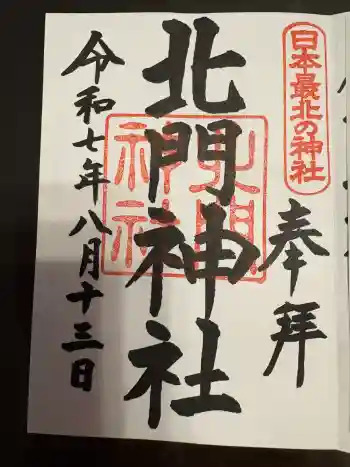 日本最北の神社
奉拝
北門神社
北門神社
令和七年八月十三日